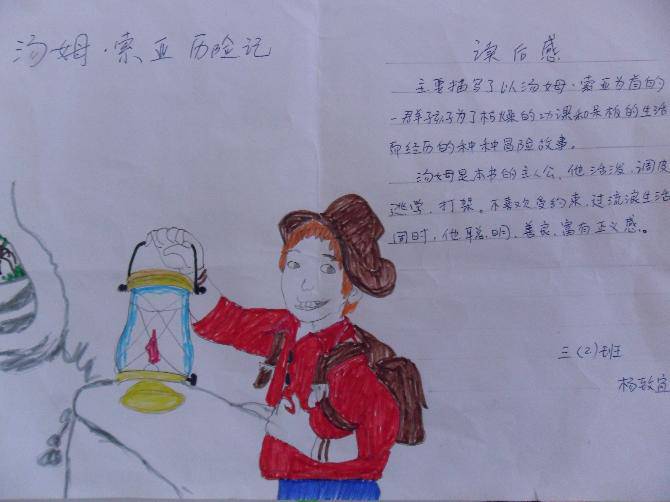 汤姆·索亚历险记
读后感
主要描写了以汤姆·索亚为首的
一群孩子为了枯燥的功课和呆板的生活
而经历的种种冒险故事。
汤姆是本书的主人公，他活泼、调皮
逃学，打架。不喜欢受约束，过流浪生活
同时，他聪明，善良，富有正义感。
三（2）班
杨致宜